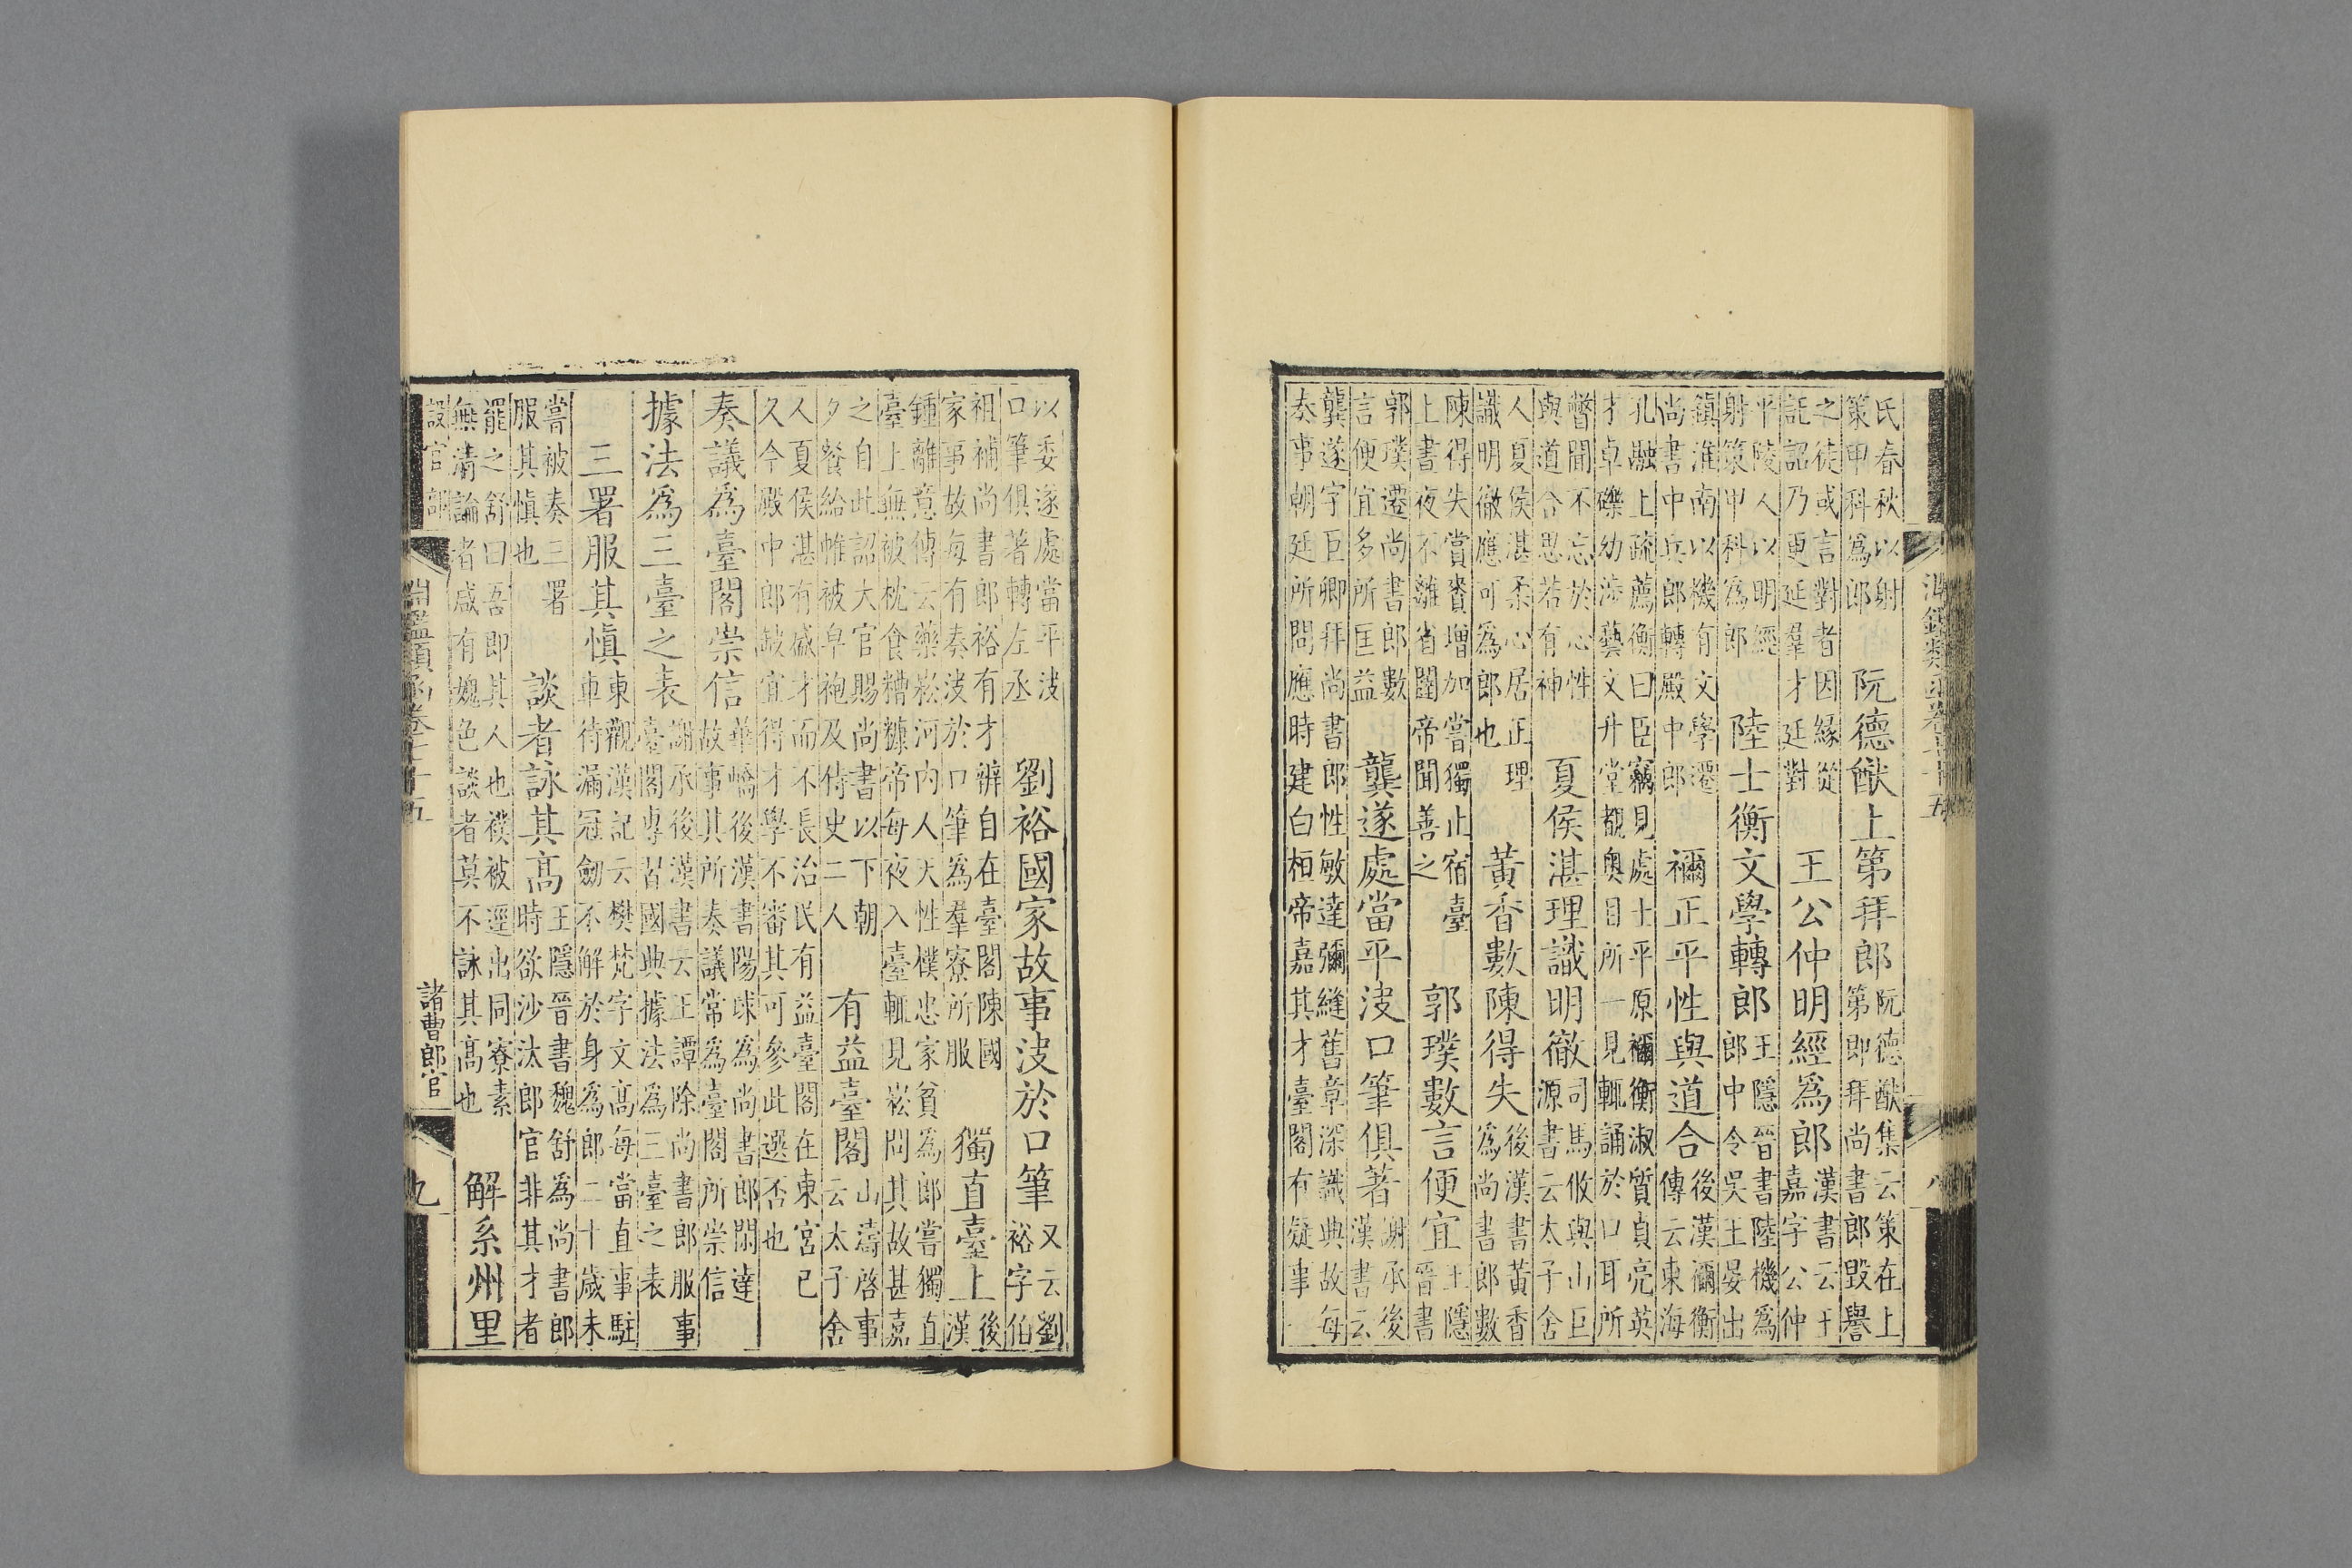 氏春秋以射
策甲科為郎
阮德猷上第拜郎
阮德猷集云策在上
第即拜尚書郎毀譽
之徒或言對者因緣從
託詔乃更延羣才廷對
王公仲明經爲郎
漢書云王
嘉字公仲
平陵人以明經
射策甲科為郎
陸士衡文學轉郎
王隱晉書陸機為
郎中令吳王晏出
鎮淮南以機有文學遷
尚書中兵郎轉殿中郎
禰正平性與道合
後漢禰衡
傳云東海
孔融上疏薦衡曰臣竊見處士平原禰衡淑質貞亮英
才卓礫幼涉藝文升堂覩奧目所一見輒誦於口耳所
瞥聞不忘於心性
與道合思若有神
夏侯湛理識明徹
司馬攸與山巨
源書云太子舍
人夏侯湛柔心居正理
識明徹應可為郎也
黃香數陳得失
後漢書黃香
為尚書郎數
陳得失賞賚增加嘗獨止宿臺
上書夜不離省闥帝聞善之
郭璞數言便宜
王隱
晉書
郭璞遷尚書郎數
言便宜多所匡益
龔遂處當平決口筆俱著
謝承後
漢書云
龔遂字巨卿拜尚書郎性敏達彌縫舊章深識典故每
奏事朝廷所問應時建白桓帝嘉其才臺閣有疑事
以委遂處當平決
口筆俱著轉左丞
劉裕國家故事決於口筆
又云劉
裕字伯
祖補尚書郎裕有才辨自在臺閣陳國
家事故每有奏決於口筆為羣寮所服
獨直臺上
後
漢
鍾離意傳云藥崧河內人天性樸忠家貧為郎嘗獨直
臺上無被枕食糟糠帝每夜入臺輒見崧問其故甚嘉
之自此詔大官賜尚書以下朝
夕餐給帷被皁袍及侍史二人
有益臺閣
山濤啓事
云太子舍
人夏侯湛有盛才而不長治民有益臺閣在東宮已
久今殿中郎缺宜得才學不審其可參此選否也
奏議爲臺閣崇信
華嶠後漢書陽球為尚書郎閑達
故事其所奏議常為臺閣所崇信
據法爲三臺之表
謝承後漢書云王譚除尚書郎服事
臺閣專習國典據法為三臺之表
三署服其慎
東觀漢記云樊梵字文高每當直事駐
車待漏冠劒不解於身為郎二十歲未
嘗被奏三署
服其慎也
談者詠其高
王隱晉書魏舒為尚書郎
時欲沙汰郎官非其才者
罷之舒曰吾即其人也襆被逕出同寮素
無清論者咸有媿色談者莫不詠其高也
解系州里
淵鑑類函卷七十五
諸曹郎官
九